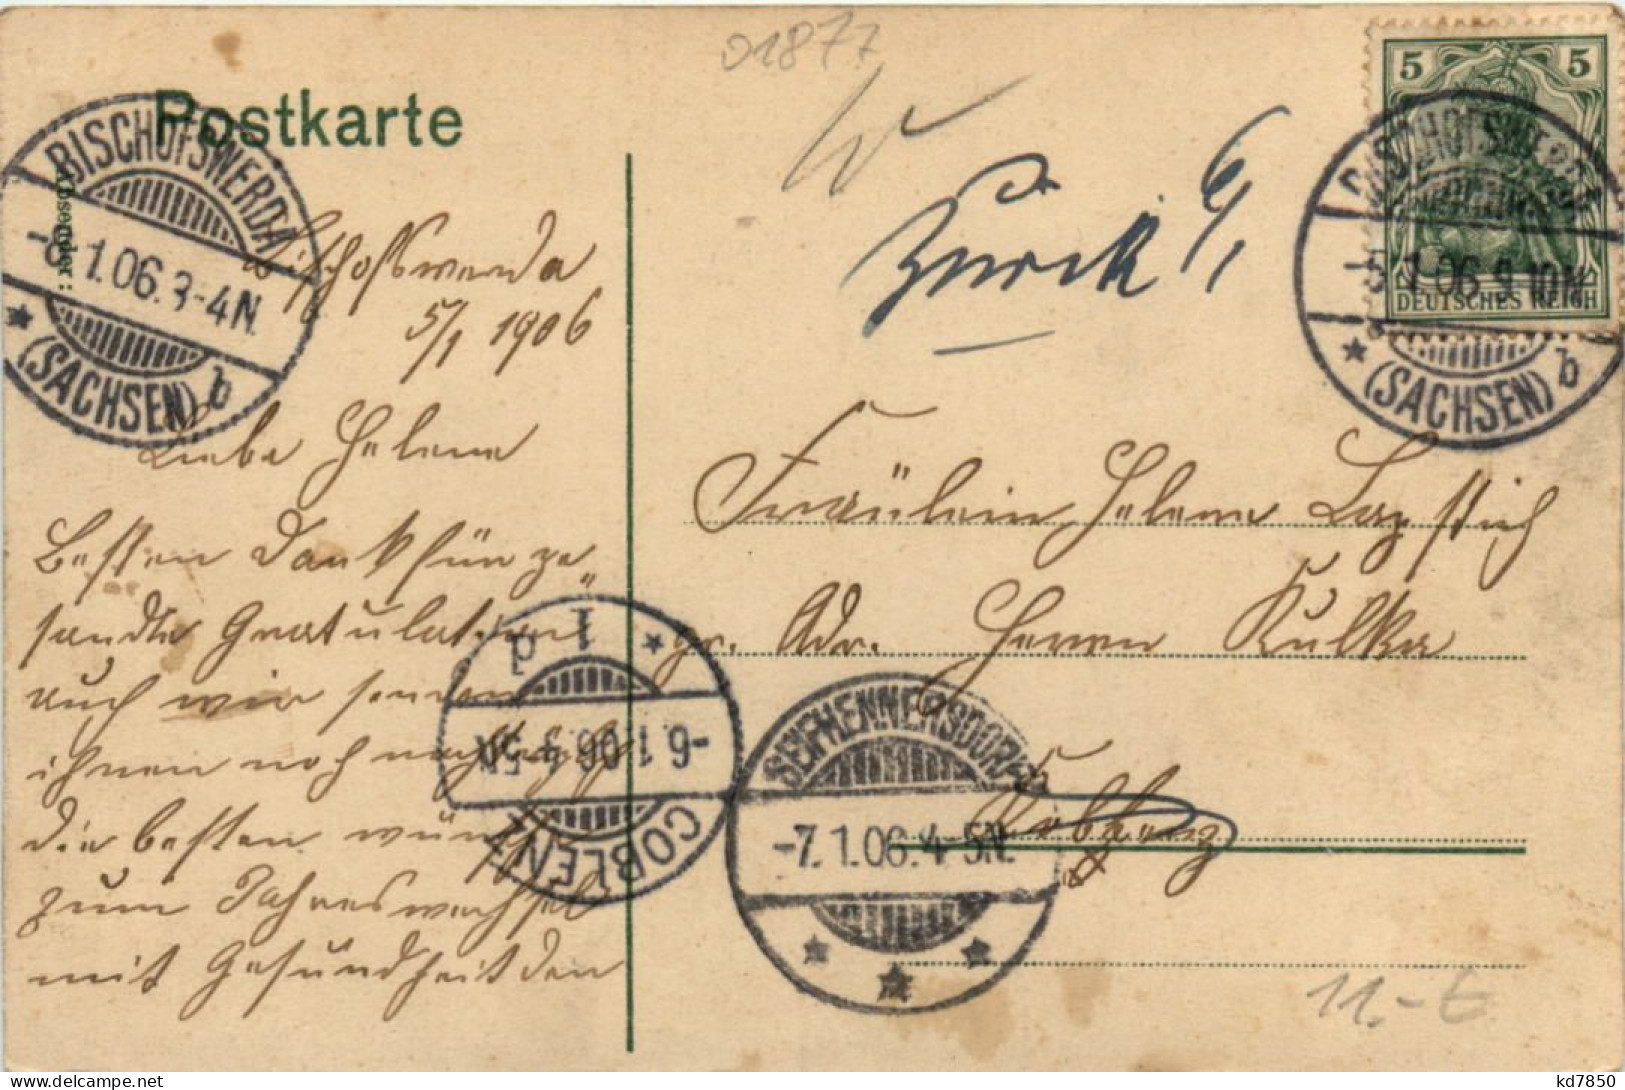 01877
Postkarte
Absender:
BISCHOFSWERDA
-8.1.06.3-4N.
(SACHSEN) b
Bischofswerda
5/1 1906
Liebe Helene
Besten Dank für ge„
sandte Gratulation
auch wir senden
ihnen noch nachträglich
die besten wünsche
zum Jahreswechsel
mit Gesundheit den
Zurück 6/1
5 5
DEUTSCHES REICH
BISCHOFSWERDA
-5.1.06.9-10N.
(SACHSEN) b
Fräulein Helene
gr. Adr. Herrn Kulka
COBLENZ
-6.1.06.4-5N
1 d
SEIFHENNERSDORF
-7.1.06.4-5N.
Koblenz
11.-E
kd7850